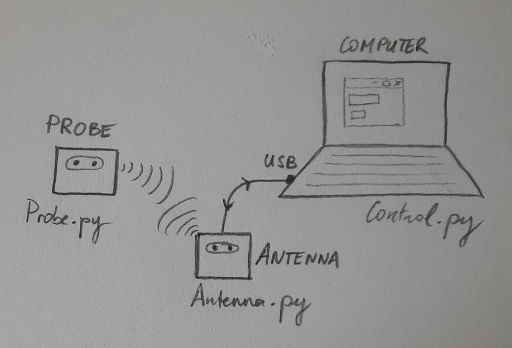 COMPUTER
PROBE
USB
Probe.py
Control.py
ANTENNA
Antenna.py